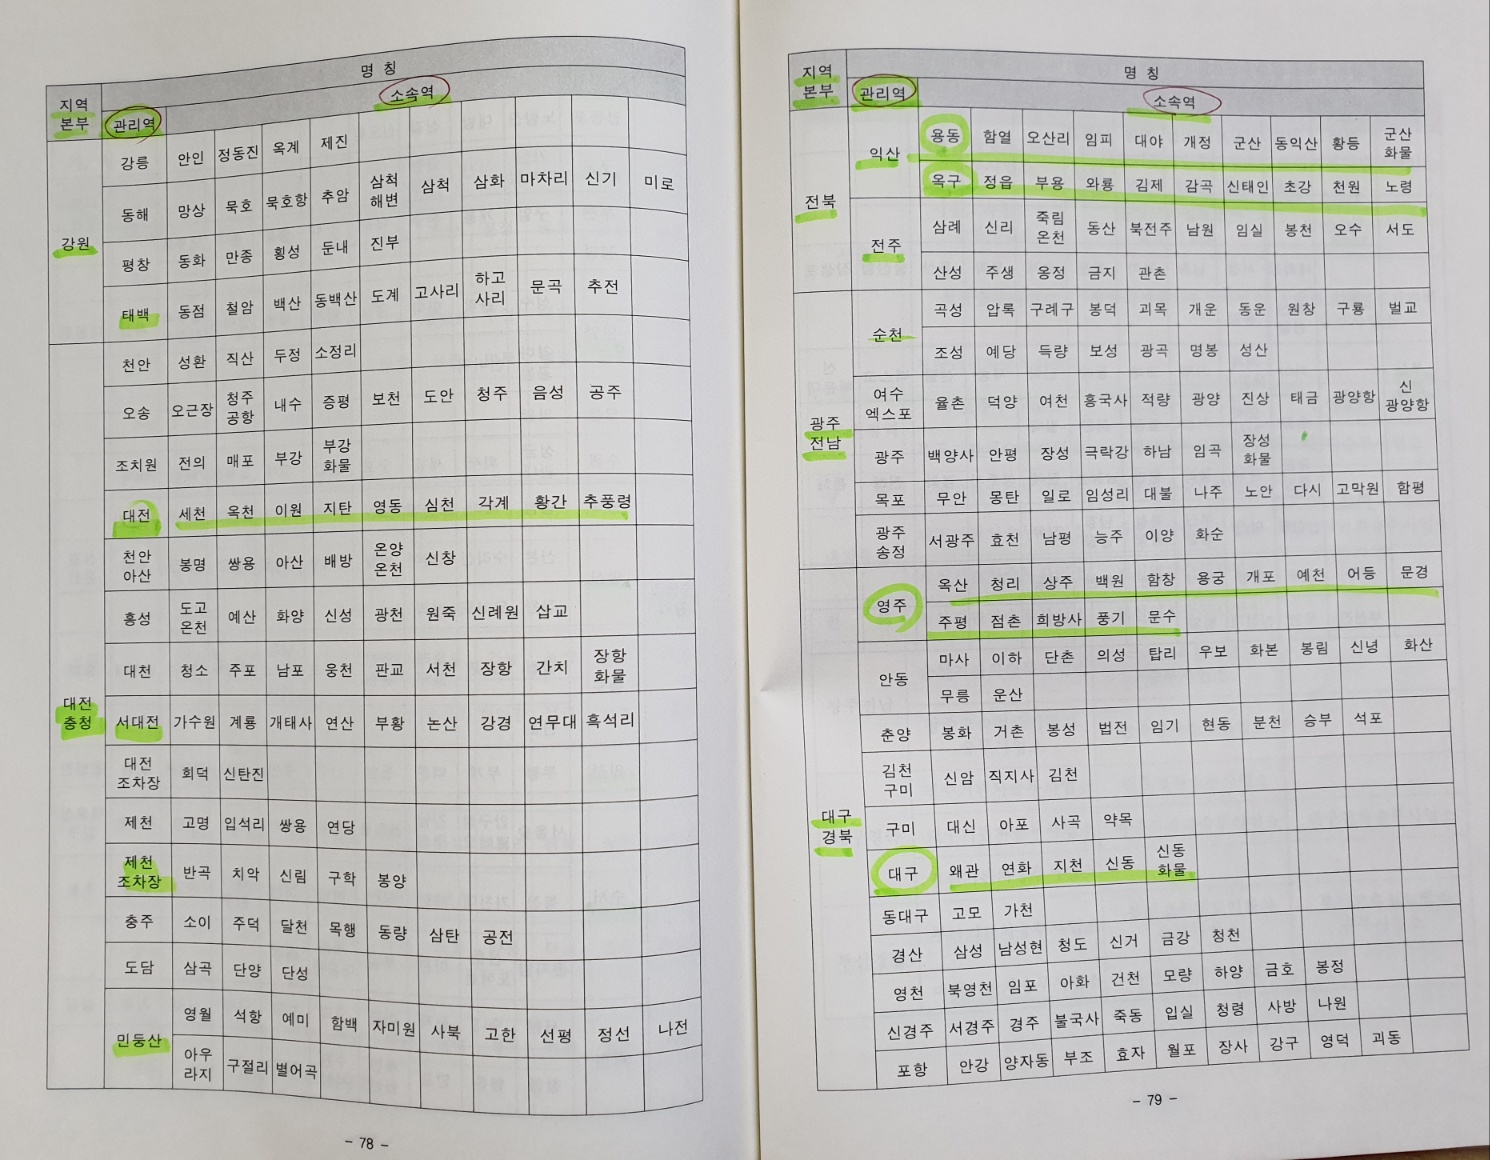 명 칭
지역
본부
관리역
소속역
강원
강릉 안인 정동진 옥계 제진
동해 망상 묵호 묵호항 추암 삼척해변 삼척 삼화 마차리 신기 미로
평창 동화 만종 횡성 둔내 진부
태백 동점 철암 백산 동백산 도계 고사리 하고사리 문곡 추전
대전
충청
천안 성환 직산 두정 소정리
오송 오근장 청주공항 내수 증평 보천 도안 청주 음성 공주
조치원 전의 매포 부강 부강화물
대전 세천 옥천 이원 지탄 영동 심천 각계 황간 추풍령
천안아산 봉명 쌍용 아산 배방 온양온천 신창
홍성 도고온천 예산 화양 신성 광천 원죽 신례원 삽교
대천 청소 주포 남포 웅천 판교 서천 장항 간치 장항화물
서대전 가수원 계룡 개태사 연산 부황 논산 강경 연무대 흑석리
대전조차장 회덕 신탄진
제천 고명 입석리 쌍용 연당
제천조차장 반곡 치악 신림 구학 봉양
충주 소이 주덕 달천 목행 동량 삼탄 공전
도담 삼곡 단양 단성
민둥산 영월 석항 예미 함백 자미원 사북 고한 선평 정선 나전
아우라지 구절리 별어곡
- 78 -
명 칭
지역
본부
관리역
소속역
전북
익산 용동 함열 오산리 임피 대야 개정 군산 동익산 황등 군산화물
옥구 정읍 부용 와룡 김제 감곡 신태인 초강 천원 노령
전주 삼례 신리 죽림온천 동산 북전주 남원 임실 봉천 오수 서도
산성 주생 옹정 금지 관촌
광주
전남
순천 곡성 압록 구례구 봉덕 괴목 개운 동운 원창 구룡 벌교
조성 예당 득량 보성 광곡 명봉 성산
여수엑스포 율촌 덕양 여천 흥국사 적량 광양 진상 태금 광양항 신광양항
광주 백양사 안평 장성 극락강 하남 임곡 장성화물
목포 무안 몽탄 일로 임성리 대불 나주 노안 다시 고막원 함평
광주송정 서광주 효천 남평 능주 이양 화순
대구
경북
영주 옥산 청리 상주 백원 함창 용궁 개포 예천 어등 문경
주평 점촌 희방사 풍기 문수
안동 마사 이하 단촌 의성 탑리 우보 화본 봉림 신녕 화산
무릉 운산
춘양 봉화 거촌 봉성 법전 임기 현동 분천 승부 석포
김천구미 신암 직지사 김천
구미 대신 아포 사곡 약목
대구 왜관 연화 지천 신동 신동화물
동대구 고모 가천
경산 삼성 남성현 청도 신거 금강 청천
영천 북영천 임포 아화 건천 모량 하양 금호 봉정
신경주 서경주 경주 불국사 죽동 입실 청령 사방 나원
포항 안강 양자동 부조 효자 월포 장사 강구 영덕 괴동
- 79 -